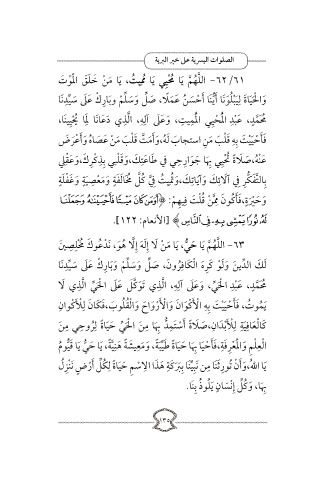 الصلوات اليسرية على خير البرية
٦١/ ٦٢- اللَّهُمَّ يَا مُحْيِي يَا مُمِيتُ، يَا مَنْ خَلَقَ الْمَوْتَ
وَالْحَيَاةَ لِيَبْلُوَنَا أَيُّنَا أَحْسَنُ عَمَلًا، صَلِّ وَسَلِّمْ وَبَارِكْ عَلَى سَيِّدِنَا
مُحَمَّدٍ، عَبْدِ الْمُحْيِي الْمُمِيتِ، وَعَلَى آلِهِ، الَّذِي دَعَانَا لِمَا يُحْيِينَا،
فَأَحْيَيْتَ بِهِ قَلْبَ مَنِ اسْتَجابَ لَهُ، وَأَمَتَّ قَلْبَ مَنْ عَصَاهُ وَأَعْرَضَ
عَنْهُ، صَلَاةً تُحْيِي بِهَا جَوَارِحِي فِي طَاعَتِكَ، وَقَلْبِي بِذِكْرِكَ، وَعَقْلِي
بِالتَّفَكُّرِ فِي آلَائِكَ وَآيَاتِكَ، وَتُمِيتُ فِيَّ كُلَّ مُخَالَفَةٍ وَمَعْصِيَةٍ وَغَفْلَةٍ
وَحَيْرَةٍ، فَأَكُونَ مِمَّنْ قُلْتَ فِيهِمْ: ﴿أَوَمَن كَانَ مَيْتًا فَأَحْيَيْنَاهُ وَجَعَلْنَا
لَهُ نُورًا يَمْشِي بِهِ فِي النَّاسِ﴾ [الأنعام: ١٢٢].
٦٣- اللَّهُمَّ يَا حَيُّ، يَا مَنْ لَا إِلَهَ إِلَّا هُوَ، نَدْعُوكَ مُخْلِصِينَ
لَكَ الدِّينَ وَلَوْ كَرِهَ الْكَافِرُونَ، صَلِّ وَسَلِّمْ وَبَارِكْ عَلَى سَيِّدِنَا
مُحَمَّدٍ، عَبْدِ الْحَيِّ، وَعَلَى آلِهِ، الَّذِي تَوَكَّلَ عَلَى الْحَيِّ الَّذِي لَا
يَمُوتُ، فَأَحْيَيْتَ بِهِ الْأَكْوَانَ وَالْأَرْوَاحَ وَالْقُلُوبَ، فَكَانَ لِلْأَكْوَانِ
كَالْعَافِيَةِ لِلْأَبْدَانِ، صَلَاةً أَسْتَمِدُّ بِهَا مِنَ الْحَيِّ حَيَاةً لِرُوحِي مِنَ
الْعِلْمِ وَالْمَعْرِفَةِ، فَأَحْيَا بِهَا حَيَاةً طَيِّبَةً، وَمَعِيشَةً هَنِيَّةً، يَا حَيُّ يَا قَيُّومُ
يَا اللهُ، وَأَنْ تُورِثَنَا مِنْ نَبِيِّنَا بِبَرَكَةِ هَذَا الِاسْمِ حَيَاةً لِكُلِّ أَرْضٍ نَنْزِلُ
بِهَا، وَكُلِّ إِنْسَانٍ يَلُوذُ بِنَا.
١٣٥